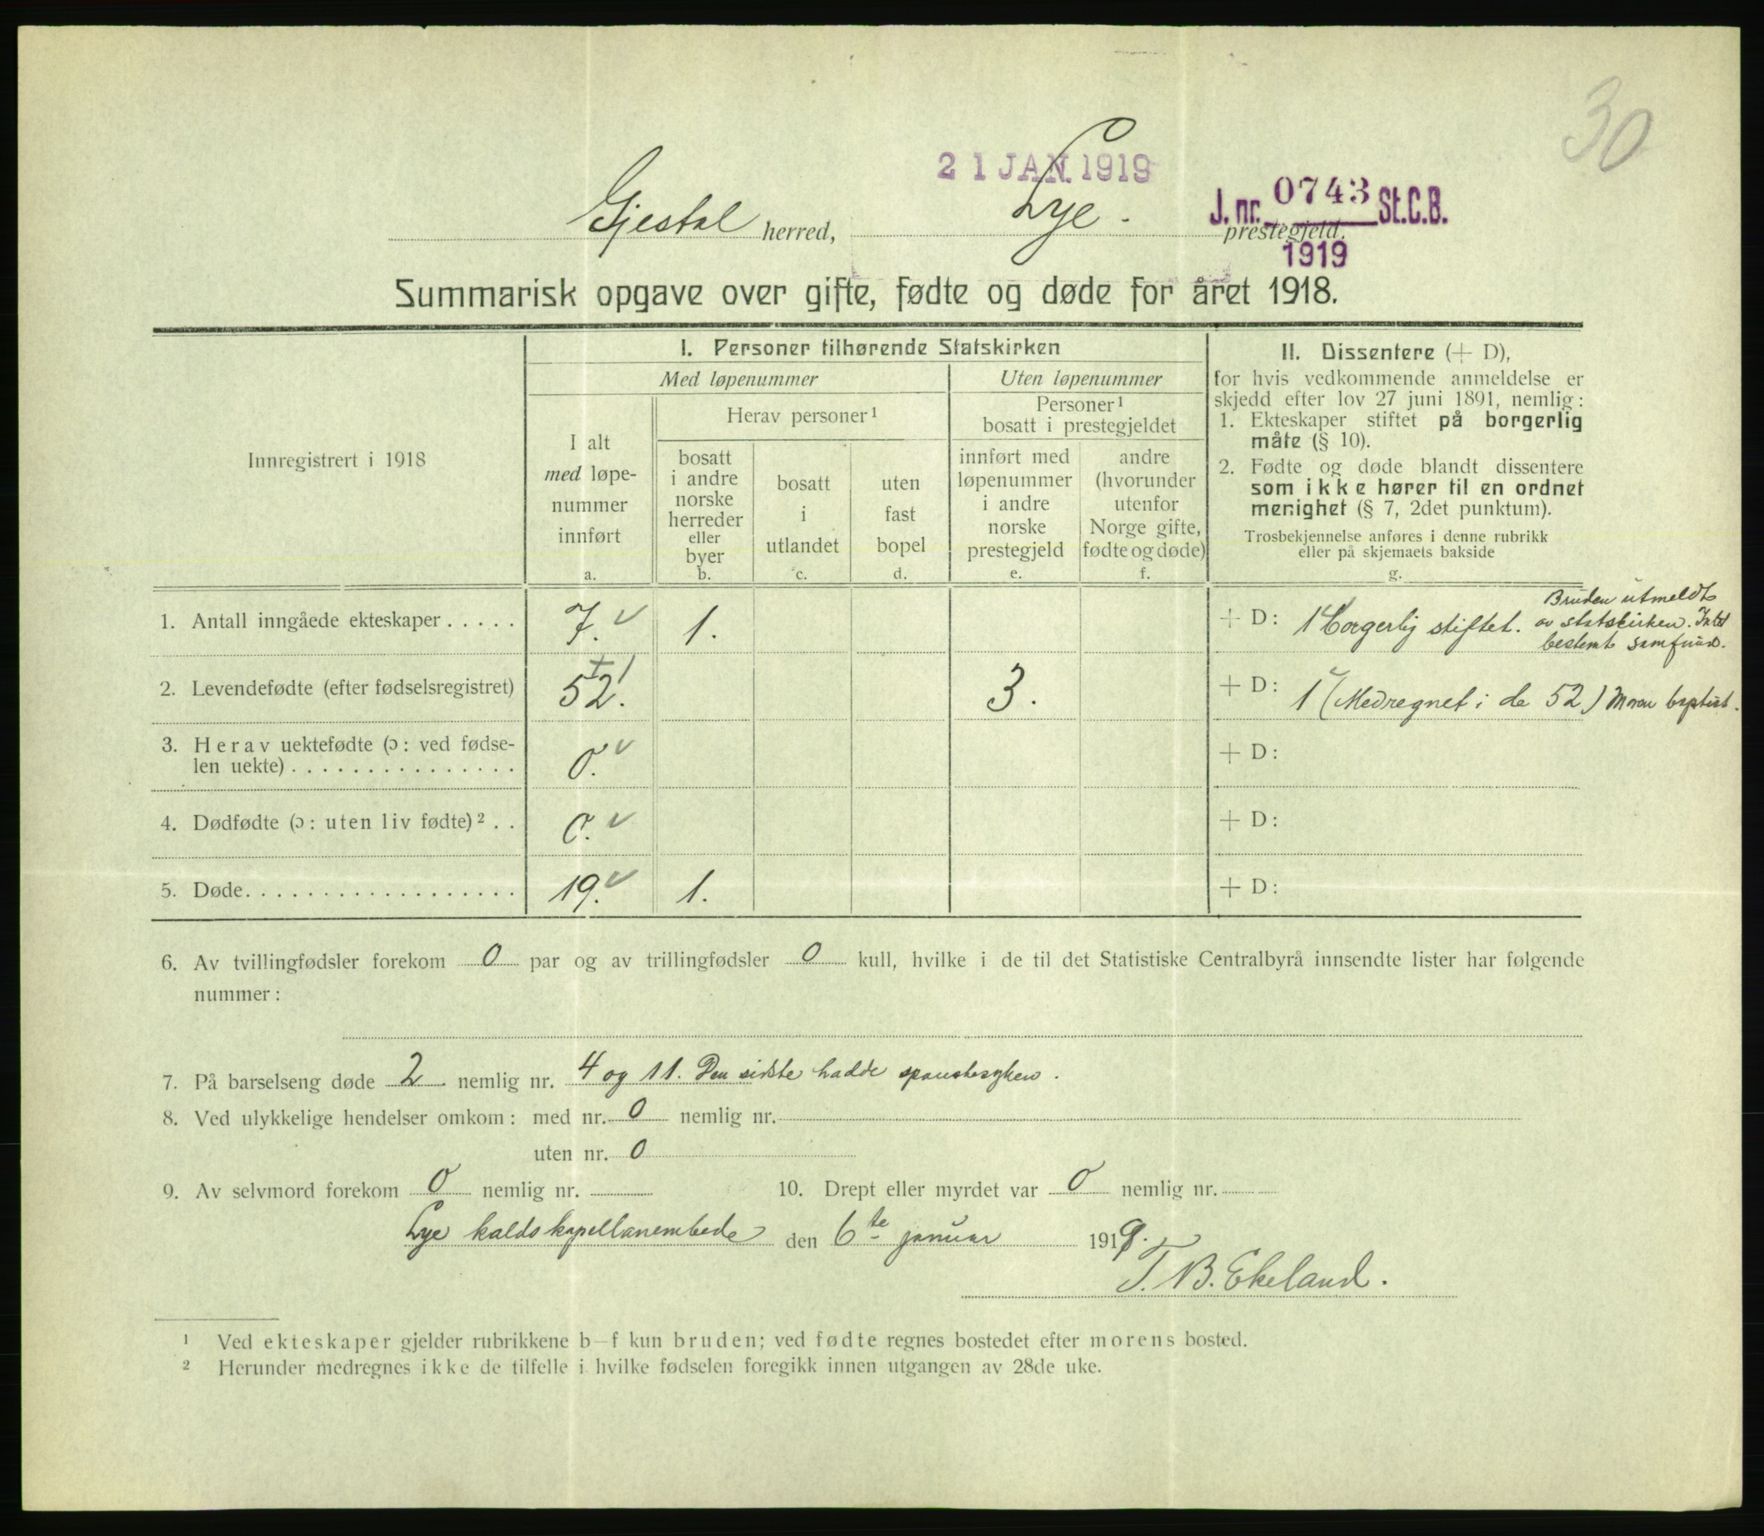 30
21 JAN. 1919
Gjestal herred, Lye. prestegjeld.
J. nr. 0743 St.C.B.
1919
Summarisk opgave over gifte, fødte og døde for året 1918.
Innregistrert i 1918
I. Personer tilhørende Statskirken
Med løpenummer
Uten løpenummer
I alt
med løpe-
nummer
innført
a.
Herav personer¹
bosatt
i andre
norske
herreder
eller
byer
b.
bosatt
i
utlandet
c.
uten
fast
bopel
d.
Personer¹
bosatt i prestegjeldet
innført med
løpenummer
i andre
norske
prestegjeld
e.
andre
(hvorunder
utenfor
Norge gifte,
fødte og døde)
f.
II. Dissentere (+ D),
for hvis vedkommende anmeldelse er
skjedd efter lov 27 juni 1891, nemlig:
1. Ekteskaper stiftet på borgerlig
måte (§ 10).
2. Fødte og døde blandt dissentere
som ikke hører til en ordnet
menighet (§ 7, 2det punktum).
Trosbekjennelse anføres i denne rubrikk
eller på skjemaets bakside
g.
1. Antall inngåede ekteskaper..... 7. 1. + D: 1 borgerlig stiftet. Bruden utmeldt
av statskirken. Intet
bestemt samfund.
2. Levendefødte (efter fødselsregistret) 52. 3. + D: 1 (Medregnet i de 52.) Moren baptist.
3. Herav uektefødte (ɔ: ved fødse-
len uekte)............... 0. + D:
4. Dødfødte (ɔ: uten liv fødte)² .. 0. + D:
5. Døde.................. 19. 1. + D:
6. Av tvillingfødsler forekom 0 par og av trillingfødsler 0 kull, hvilke i de til det Statistiske Centralbyrå innsendte lister har følgende
nummer:
7. På barselseng døde 2 nemlig nr. 4 og 11. Den sidste hadde spanskesyken.
8. Ved ulykkelige hendelser omkom: med nr. 0 nemlig nr.
uten nr. 0
9. Av selvmord forekom 0 nemlig nr. 10. Drept eller myrdet var 0 nemlig nr.
Lye kaldskapellanembede den 6te januar 1919.
T. B. Ekeland.
¹ Ved ekteskaper gjelder rubrikkene b–f kun bruden; ved fødte regnes bostedet efter morens bosted.
² Herunder medregnes ikke de tilfelle i hvilke fødselen foregikk innen utgangen av 28de uke.